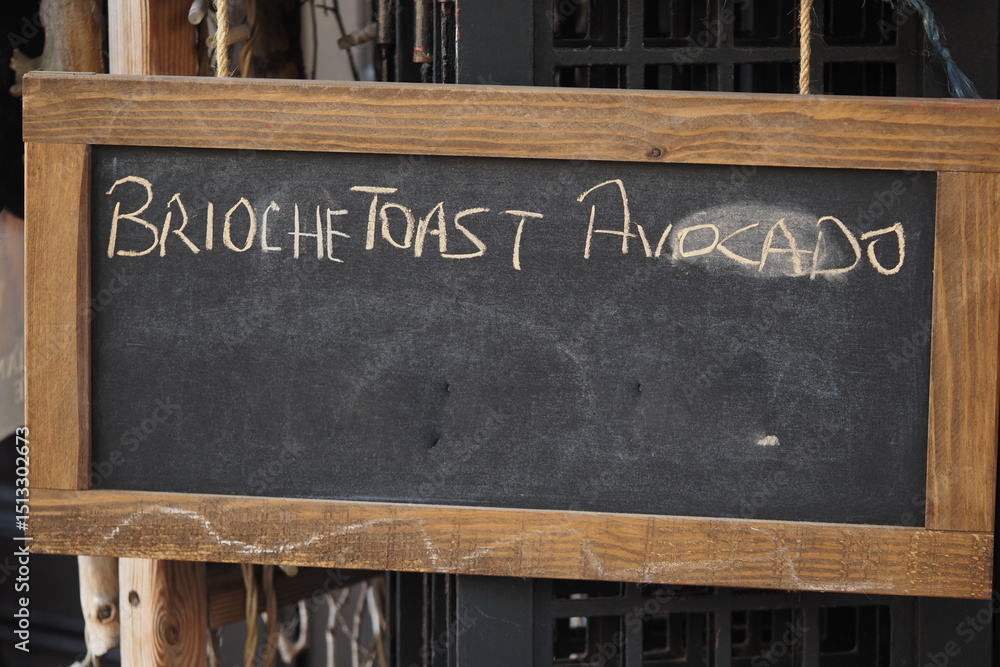 BRIOCHE TOAST AVOCADO
Adobe Stock | #1513302673